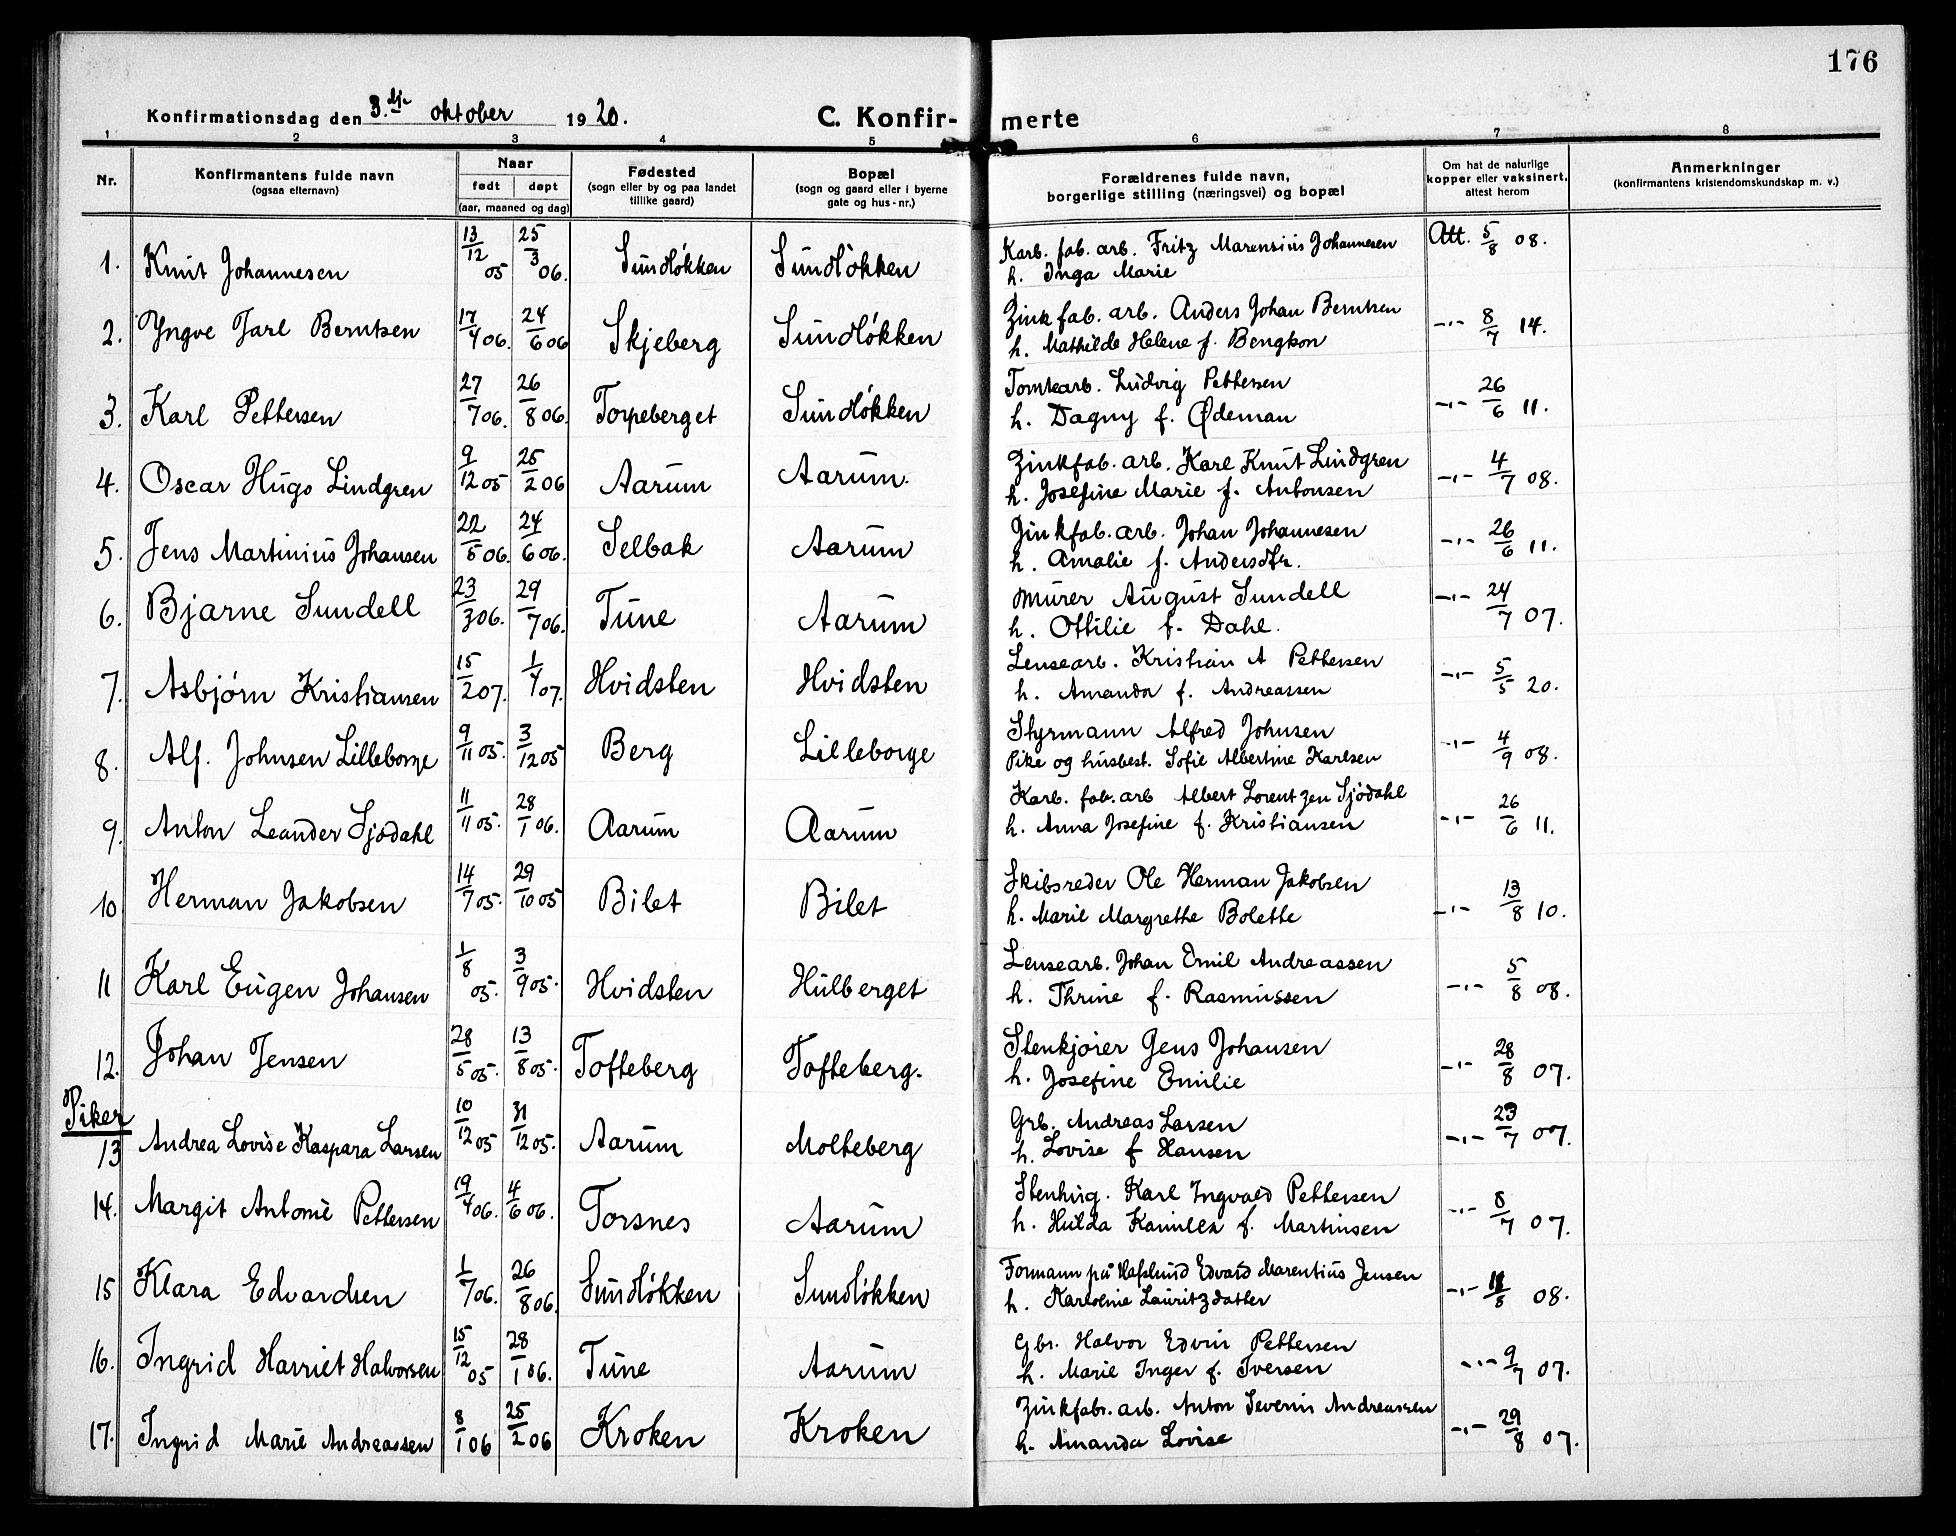 176
Konfirmationsdag den 3.dje oktober 1920. C. Konfir- merte
1 2 3 4 5 6 7 8
Nr. Konfirmantens fulde navn (ogsaa efternavn) Naar født døpt (aar, maaned og dag) Fødested (sogn eller by og paa landet tillike gaard) Bopæl (sogn og gaard eller i byerne gate og hus-nr.) Forældrenes fulde navn, borgerlige stilling (næringsvei) og bopæl Om hat de naturlige kopper eller vaksinert, attest herom Anmerkninger (konfirmantens kristendomskundskap m. v.)
1. Knut Johannesen 13/12 05 25/3 06. Sundløkken Sundløkken Karb. fab. arb. Fritz Marensius Johannesen Att. 5/8 08.
h. Inga Marie
2. Yngve Jarl Berntsen 17/4 06. 24/6 06 Skjeberg Sundløkken Zinkfab. arb. Anders Johan Berntsen -"- 8/7 14.
h. Mathilde Helene f. Bengtson
3. Karl Pettersen 27/7 06. 26/8 06. Torpeberget Sundløkken Tomtearb. Ludvig Pettersen -"- 26/6 11.
h. Dagny f. Ødeman
4. Oscar Hugo Lindgren 9/12 05 25/2 06 Aarum Aarum. Zinkfab. arb. Karl Knut Lindgren -"- 4/7 08.
h. Josefine Marie f. Antonsen
5. Jens Martinius Johansen 22/5 06. 24/6 06. Selbak Aarum Zinkfab. arb. Johan Johannesen -"- 26/6 11.
h. Amalie f. Andersdtr.
6. Bjarne Sundell 23/3 06. 29/7 06. Tune Aarum Murer August Sundell -"- 24/7 07.
h. Ottilie f. Dahl.
7. Asbjørn Kristiansen 15/2 07. 1/4 07. Hvidsten Hvidsten Lensearb. Kristian A Pettersen -"- 5/5 20.
h. Amanda f. Andreassen
8. Alf. Johnsen Lilleborge 9/11 05. 3/12 05 Berg Lilleborge Styrmann Alfred Johnsen -"- 4/9 08.
Pike og husbest. Sofie Albertine Karlsen
9. Anton Leander Sjödahl 11/11 05. 28/1 06. Aarum Aarum Karb. fab. arb Albert Lorentzen Sjödahl -"- 26/6 11.
h. Anna Josefine f. Kristiansen
10 Herman Jakobsen 14/7 05. 29/10 05 Bilet Bilet Skibsreder Ole Herman Jakobsen -"- 13/8 10.
h. Marie Margrethe Bolette
11 Karl Eugen Johansen 1/8 05. 3/9 05. Hvidsten Hulberget Lensearb. Johan Emil Andreassen -"- 5/8 08.
h. Thrine f. Rasmussen
12. Johan Jensen 28/5 05. 13/8 05. Tofteberg Tofteberg. Stenkjører Jens Johansen -"- 28/8 07.
h. Josefine Emilie
Piker
13 Andrea Lovise Kaspara Larsen 10/12 05 31/12 05. Aarum Molteberg Grb. Andreas Larsen -"- 23/7 07.
h. Lovise f Hansen
14. Margit Antonie Pettersen 19/4 06. 4/6 06. Torsnes Aarum Stenhug. Karl Ingvald Pettersen -"- 8/7 07.
h. Hulda Kamilla f. Martinsen
15 Klara Edvardsen 1/7 06. 26/8 06. Sundløkken Sundløkken Formann på Hafslund Edvard Marentius Jensen -"- 11/8 08.
h. Karoline Lauritzdatter
16. Ingrid Harriet Halvorsen 15/12 05 28/1 06. Tune Aarum Gbr. Halvor Edvin Pettersen -"- 9/7 07.
h. Marie Inger f. Iversen
17. Ingrid Marie Andreassen 8/1 06 25/2 06 Kroken Kroken Zinkfabr. arb. Anton Severin Andreassen -"- 29/8 07.
h. Amanda Lovise